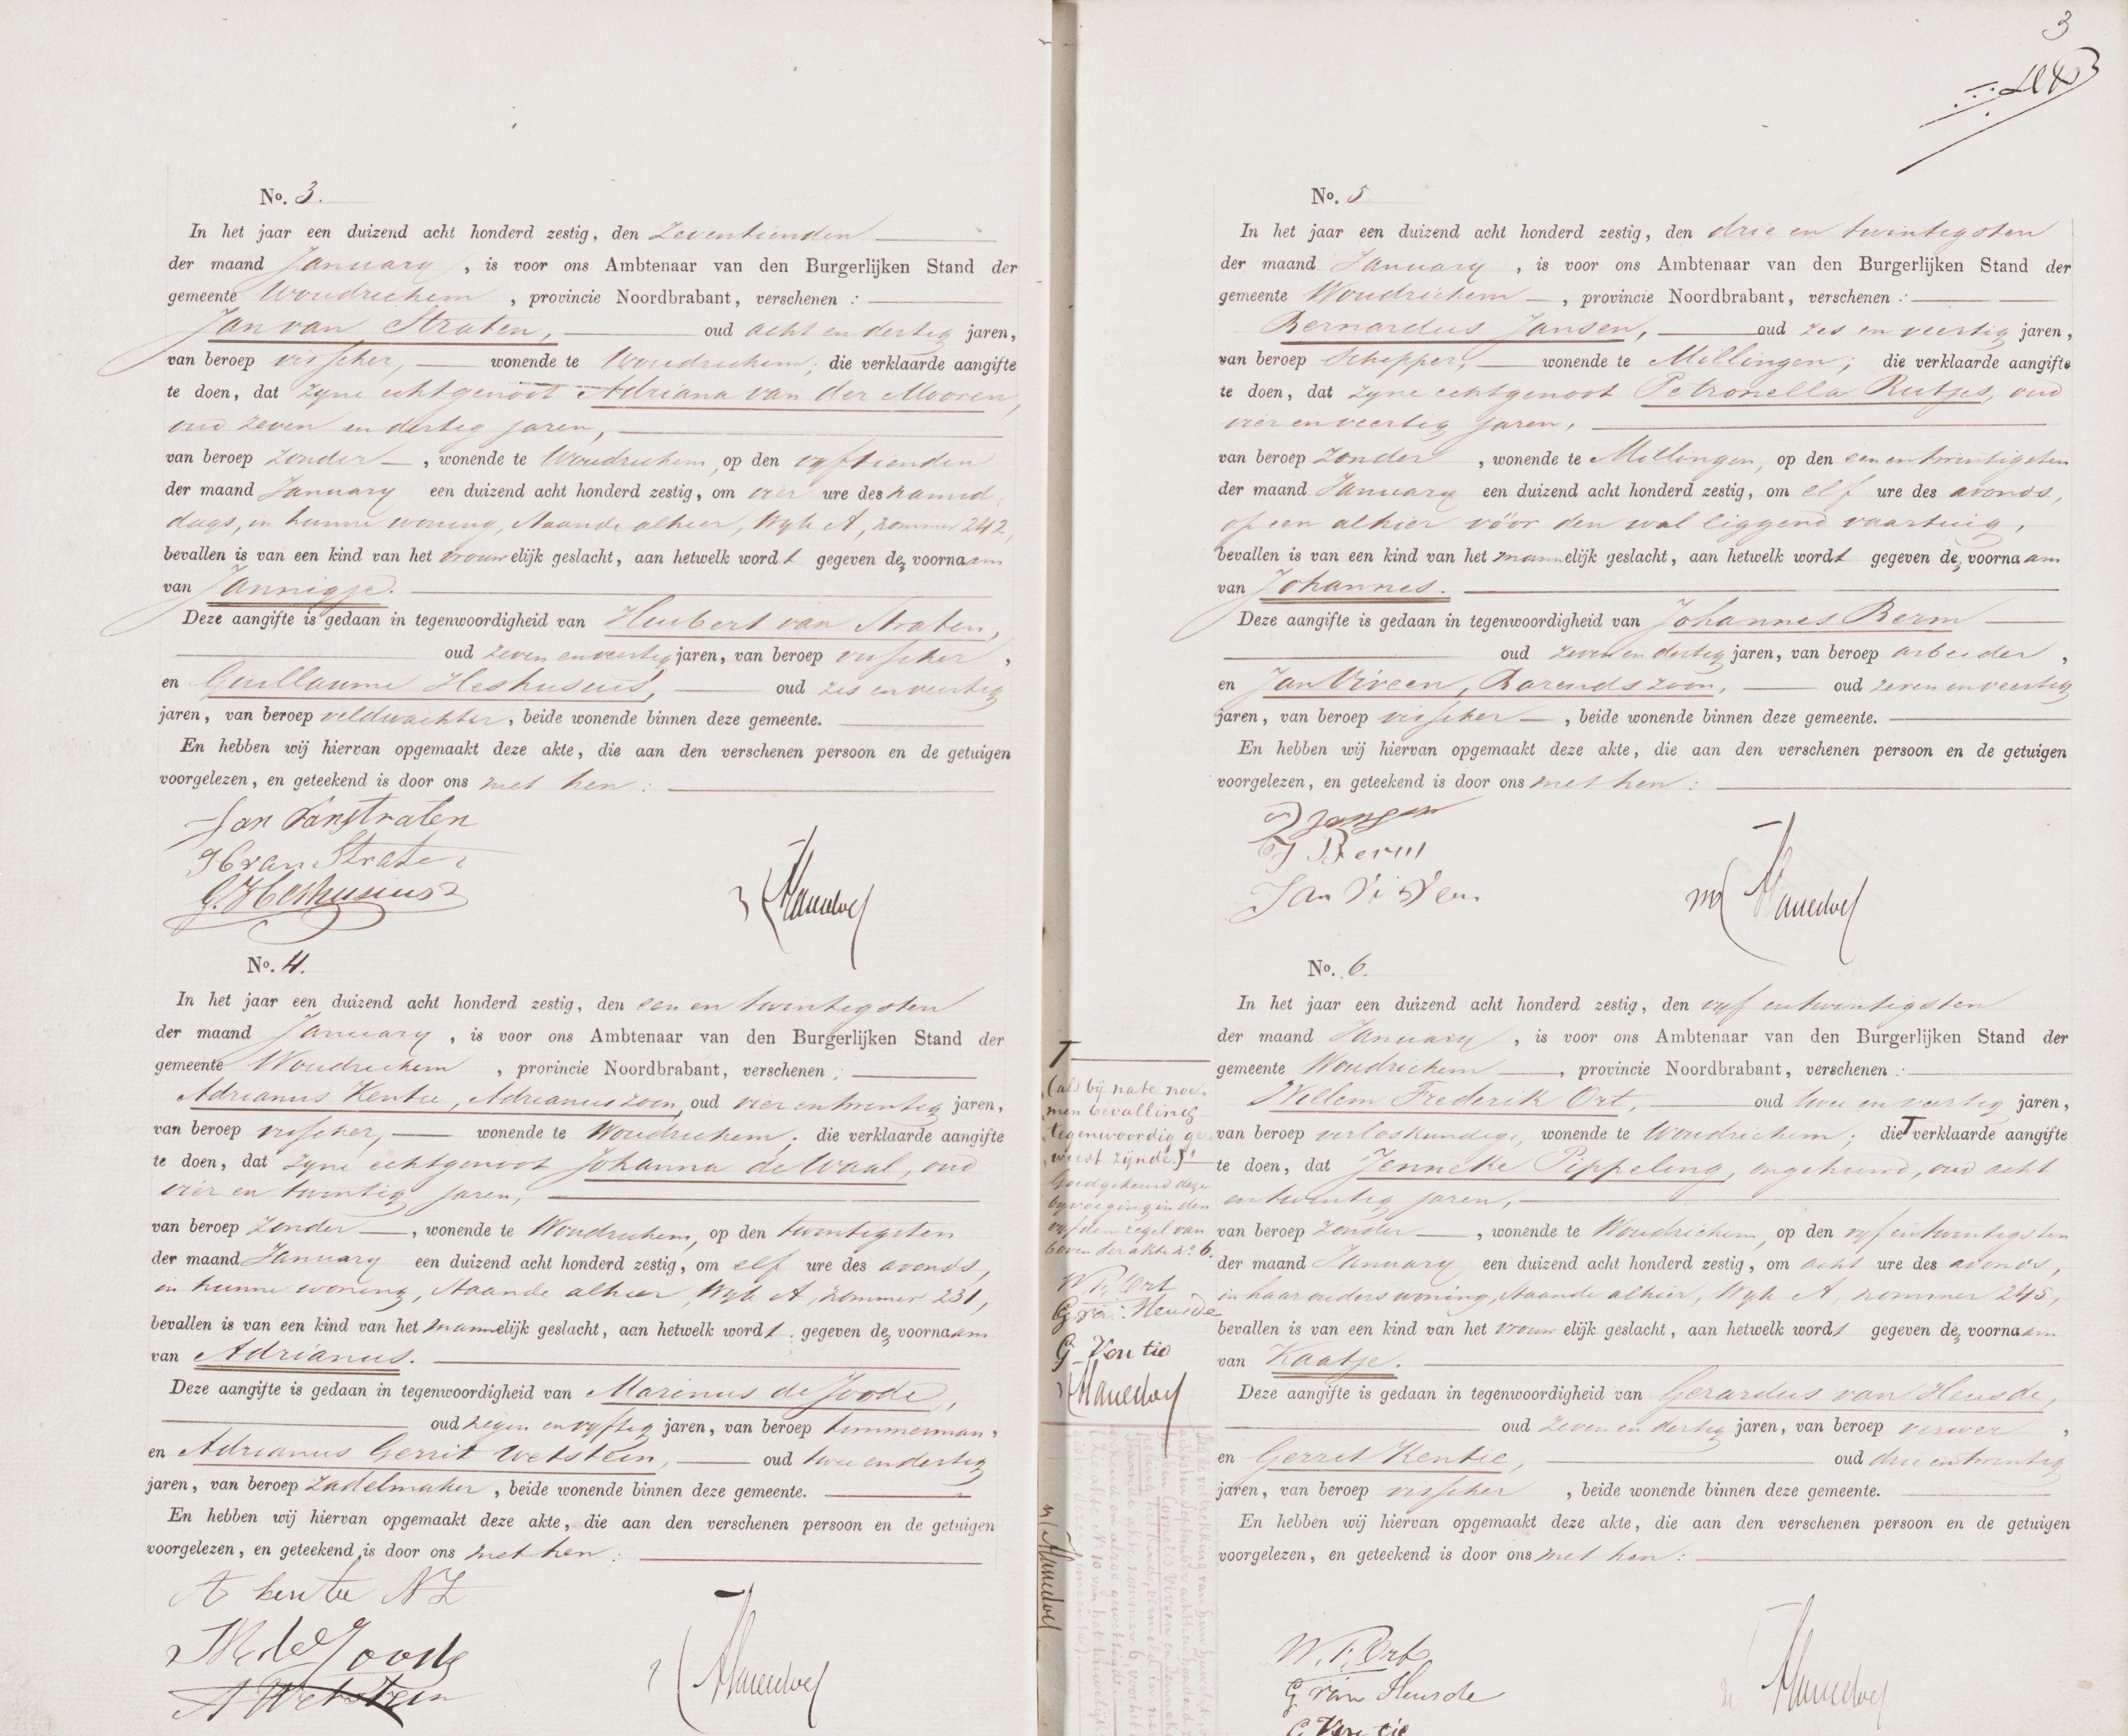 No. 3.
In het jaar een duizend acht honderd zestig, den zeventienden
der maand January, is voor ons Ambtenaar van den Burgerlijken Stand der
gemeente Woudrichem, provincie Noordbrabant, verschenen:
Jan van Straten, oud acht en dertig jaren,
van beroep visscher, wonende te Woudrichem; die verklaarde aangifte
te doen, dat zyne echtgenoot Adriana van der Mooren,
oud zeven en dertig jaren,
van beroep zonder, wonende te Woudrichem, op den vyftienden
der maand January een duizend acht honderd zestig, om vier ure des namid-
dags, in hunne woning, staande alhier, Wyk A, nommer 242,
bevallen is van een kind van het vrouwelijk geslacht, aan hetwelk wordt gegeven de voornaam
van Jannigje.
Deze aangifte is gedaan in tegenwoordigheid van Huibert van Straten,
oud zeven en veertig jaren, van beroep visscher,
en Guillaume Heshusius, oud zes en veertig
jaren, van beroep veldwachter, beide wonende binnen deze gemeente.
En hebben wij hiervan opgemaakt deze akte, die aan den verschenen persoon en de getuigen
voorgelezen, en geteekend is door ons met hen:
Jan Vanstraten
H van Straten
G. Heshusius
No. 4.
In het jaar een duizend acht honderd zestig, den een en twintigsten
der maand January, is voor ons Ambtenaar van den Burgerlijken Stand der
gemeente Woudrichem, provincie Noordbrabant, verschenen:
Adrianus Kentie, Adrianuszoon, oud vier en twintig jaren,
van beroep visscher, wonende te Woudrichem; die verklaarde aangifte
te doen, dat zyne echtgenoot Johanna de Waal, oud
vier en twintig jaren,
van beroep zonder, wonende te Woudrichem, op den twintigsten
der maand January een duizend acht honderd zestig, om elf ure des avonds,
in hunne woning, staande alhier, Wyk A, nommer 231,
bevallen is van een kind van het mannelijk geslacht, aan hetwelk wordt gegeven de voornaam
van Adrianus.
Deze aangifte is gedaan in tegenwoordigheid van Marinus de Joode,
oud negen en vyftig jaren, van beroep timmerman,
en Adrianus Gerrit Wetstein, oud twee en dertig
jaren, van beroep zadelmaker, beide wonende binnen deze gemeente.
En hebben wij hiervan opgemaakt deze akte, die aan den verschenen persoon en de getuigen
voorgelezen, en geteekend is door ons met hen:
A kentie AZ
M de Joode
A Wetstein
3
No. 5
In het jaar een duizend acht honderd zestig, den drie en twintigsten
der maand January, is voor ons Ambtenaar van den Burgerlijken Stand der
gemeente Woudrichem, provincie Noordbrabant, verschenen:
Bernardus Jansen, oud zes en veertig jaren,
van beroep Schipper, wonende te Millingen; die verklaarde aangifte
te doen, dat zyne echtgenoot Petronella Rutjes, oud
vier en veertig jaren,
van beroep zonder, wonende te Millingen, op den een en twintigsten
der maand January een duizend acht honderd zestig, om elf ure des avonds,
op een alhier vóór den wal liggend vaartuig,
bevallen is van een kind van het mannelijk geslacht, aan hetwelk wordt gegeven de voornaam
van Johannes.
Deze aangifte is gedaan in tegenwoordigheid van Johannes Berm
oud zeven en dertig jaren, van beroep arbeider,
en Jan Viveen, Barends zoon, oud zeven en veertig
jaren, van beroep visscher, beide wonende binnen deze gemeente.
En hebben wij hiervan opgemaakt deze akte, die aan den verschenen persoon en de getuigen
voorgelezen, en geteekend is door ons met hen:
B Jansen
J Berm
Jan Viveen
No. 6.
In het jaar een duizend acht honderd zestig, den vyf en twintigsten
der maand January, is voor ons Ambtenaar van den Burgerlijken Stand der
gemeente Woudrichem, provincie Noordbrabant, verschenen:
Willem Frederik Ort, oud twee en veertig jaren,
van beroep verloskundige, wonende te Woudrichem; die T verklaarde aangifte
te doen, dat Jenneke Pippeling, ongehuwd, oud acht
en twintig jaren,
van beroep zonder, wonende te Woudrichem, op den vyf en twintigsten
der maand January een duizend acht honderd zestig, om acht ure des avonds,
in haar ouders woning, staande alhier, Wyk A, nommer 245,
bevallen is van een kind van het vrouwelijk geslacht, aan hetwelk wordt gegeven de voornaam
van Kaatje.
Deze aangifte is gedaan in tegenwoordigheid van Gerardus van Heusde,
oud zeven en dertig jaren, van beroep verwer,
en Gerret Kentie, oud drie en twintig
jaren, van beroep visscher, beide wonende binnen deze gemeente.
En hebben wij hiervan opgemaakt deze akte, die aan den verschenen persoon en de getuigen
voorgelezen, en geteekend is door ons met hen:
W. F. Ort
G van Heusde
G Kentie
T
(als bij nate noe-
men bevalling
tegenwoordig ge-
weest zijnde.)
Goedgekeurd deze
byvoeging in den
vyfden regel van
boven der akte No 6.
W. F. Ort
G van Heusde
G Kentie